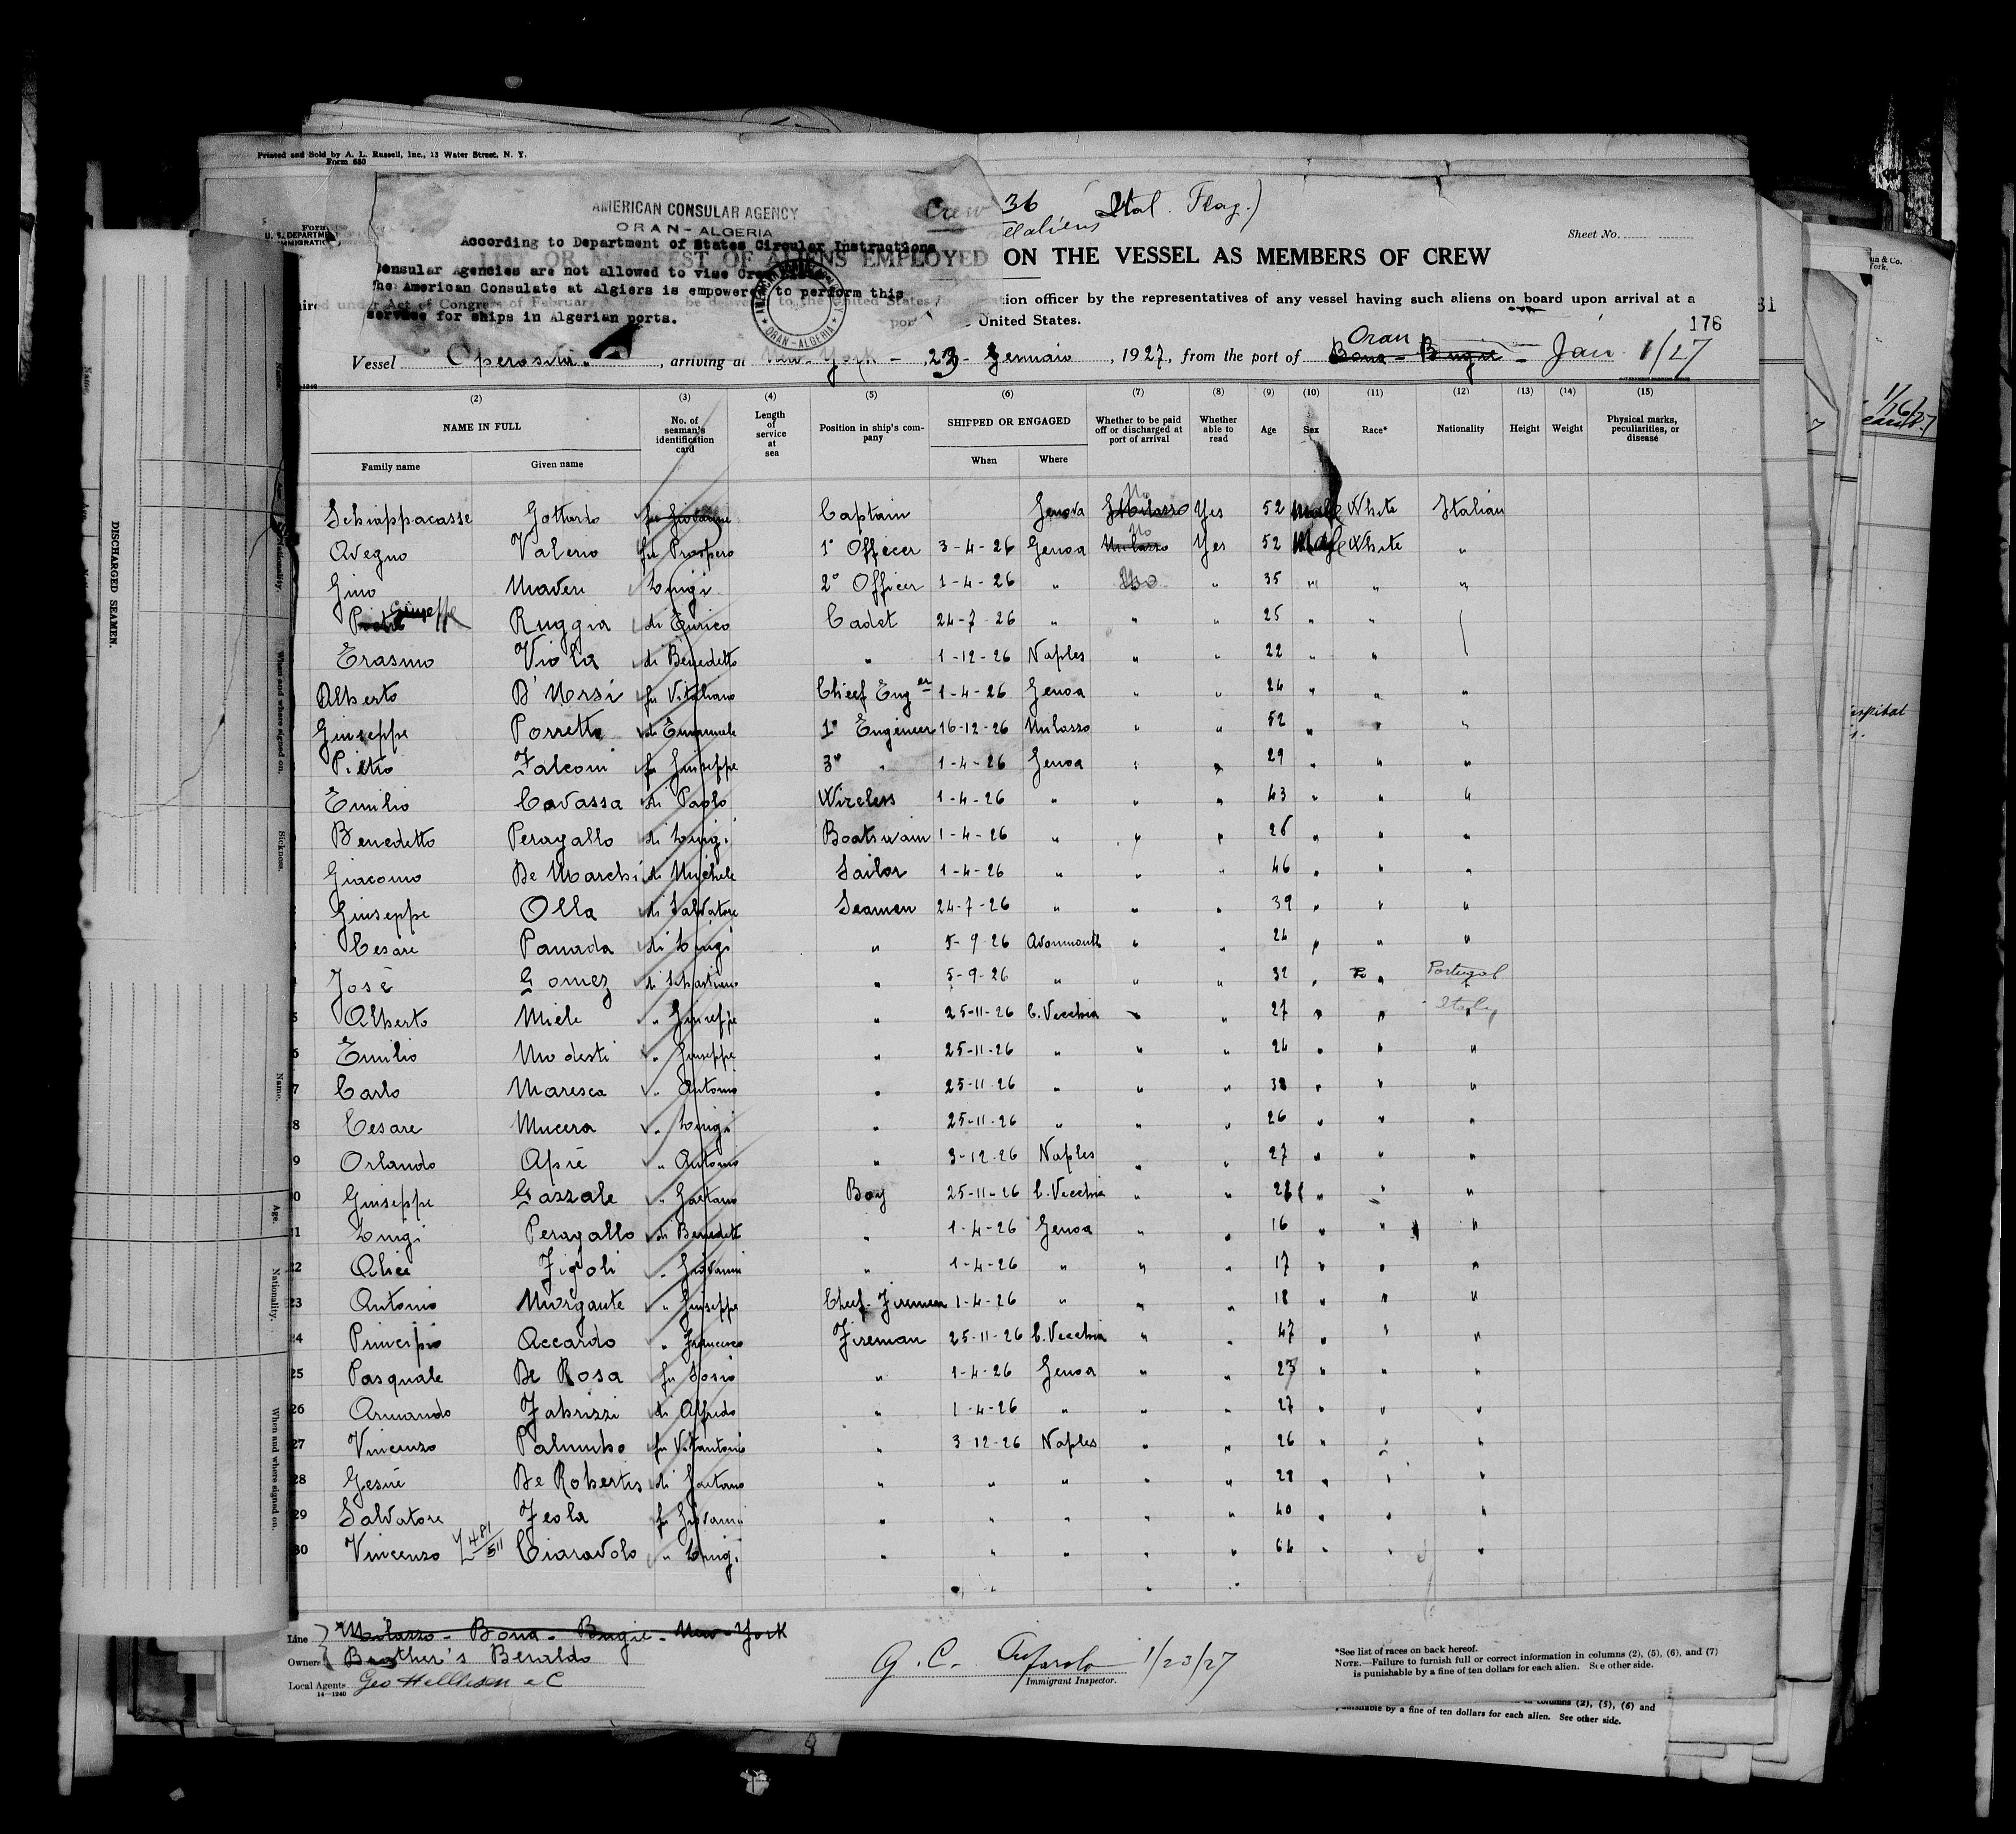 Printed and Sold by A. L. Russell, Inc., 13 Water Street, N. Y.
Form 680
AMERICAN CONSULAR AGENCY
ORAN - ALGERIA
Crew 36 Ital. Flag.)
According to Department of States Circular Instructions
Consular Agencies are not allowed to vise Crew
The American Consulate at Algiers is empowered to perform this
service for ships in Algerian ports.
Sheet No.
LIST OR MANIFEST OF ALIENS EMPLOYED ON THE VESSEL AS MEMBERS OF CREW
officer by the representatives of any vessel having such aliens on board upon arrival at a
United States.
176
Vessel Operosita, arriving at New-York - , 23 - Gennaio , 1927, from the port of Oran Bona - Bugie - Jan 1/27
(2) (3) (4) (5) (6) (7) (8) (9) (10) (11) (12) (13) (14) (15)
NAME IN FULL No. of seaman's identification card Length of service at sea Position in ship's company SHIPPED OR ENGAGED Whether to be paid off or discharged at port of arrival Whether able to read Age Sex Race* Nationality Height Weight Physical marks, peculiarities, or disease
Family name Given name When Where
Schiappacasse Gottardo fu Giovanni Captain Genova No Milazzo Yes 52 Male White Italian
Avegno Valerio fu Prospero 1° Officer 3-4-26 Genoa No Milazzo Yes 52 Male White "
Gino Maveri Luigi 2° Officer 1-4-26 " No " 35 " " "
Giuseppe Ruggia di Enrico Cadet 24-7-26 " " " 25 " "
Erasmo Viola di Benedetto " 1-12-26 Naples " " 22 " "
Alberto D'Orsi fu Vitaliano Chief Eng er 1-4-26 Genoa " " 24 " " "
Giuseppe Porretto di Emanuele 1° Engineer 16-12-26 Milazzo " " 52 " " "
Pietro Falconi fu Giuseppe 3° " 1-4-26 Genoa " " 29 " " "
Emilio Cavassa di Paolo Wireless 1-4-26 " " " 43 " " "
Benedetto Peragallo di Luigi Boatswain 1-4-26 " " " 26 " " "
Giacomo De Marchi di Michele Sailor 1-4-26 " " " 46 " " "
Giuseppe Olla di Salvatore Seamen 24-7-26 " " " 39 " " "
Cesare Panada di Luigi " 5-9-26 Avonmouth " " 24 " " "
José Gomez di Sebastiano " 5-9-26 " " " 32 " " Portugal
Alberto Miele " Giuseppe " 25-11-26 C. Vecchia " " 27 " " Italy
6 Emilio Modesti " Giuseppe " 25-11-26 " " " 24 " " "
7 Carlo Maresca " Antonio " 25-11-26 " " " 38 " " "
8 Cesare Mucera " Luigi " 25-11-26 " " " 26 " " "
9 Orlando Aprè " Antonio " 3-12-26 Naples " " 27 " " "
0 Giuseppe Gazzale " Gaetano Boy 25-11-26 C. Vecchia " " " " "
1 Luigi Peragallo di Benedetto " 1-4-26 Genoa " " 16 " " "
22 Alice Figoli " Giovanni " 1-4-26 " " " 17 " " "
23 Antonio Morgante " Giuseppe Chief-Firemen 1-4-26 " " " 18 " " "
24 Principio Accardo " Francesco Fireman 25-11-26 C. Vecchia " " 47 " " "
25 Pasquale De Rosa fu Sosio " 1-4-26 Genoa " " 23 " " "
26 Armando Fabrizzi di Alfredo " 1-4-26 " " " 27 " " "
27 Vincenzo Palumbo fu Vitantonio " 3 12-26 Naples " " 26 " " "
28 Gesuè De Robertis di Gaetano " " " " " 28 " " "
29 Salvatore Feola fu Giovanni " " " " " 40 " " "
30 Vincenzo Ciaravolo " Luigi " " " " " 64 " " "
Line Milazzo - Bona - Bugie - New-York
Owners Brother's Beraldo
Local Agents Geo
14-1240
G. C. 1/23/27
Immigrant Inspector.
*See list of races on back hereof.
NOTE.—Failure to furnish full or correct information in columns (2), (5), (6), and (7)
is punishable by a fine of ten dollars for each alien. See other side.
in columns (2), (5), (6) and
punishable by a fine of ten dollars for each alien. See other side.
DISCHARGED SEAMEN.
Name.
Nationality.
When and where signed on.
Sickness.
Name.
Age.
Nationality.
When and where signed on.